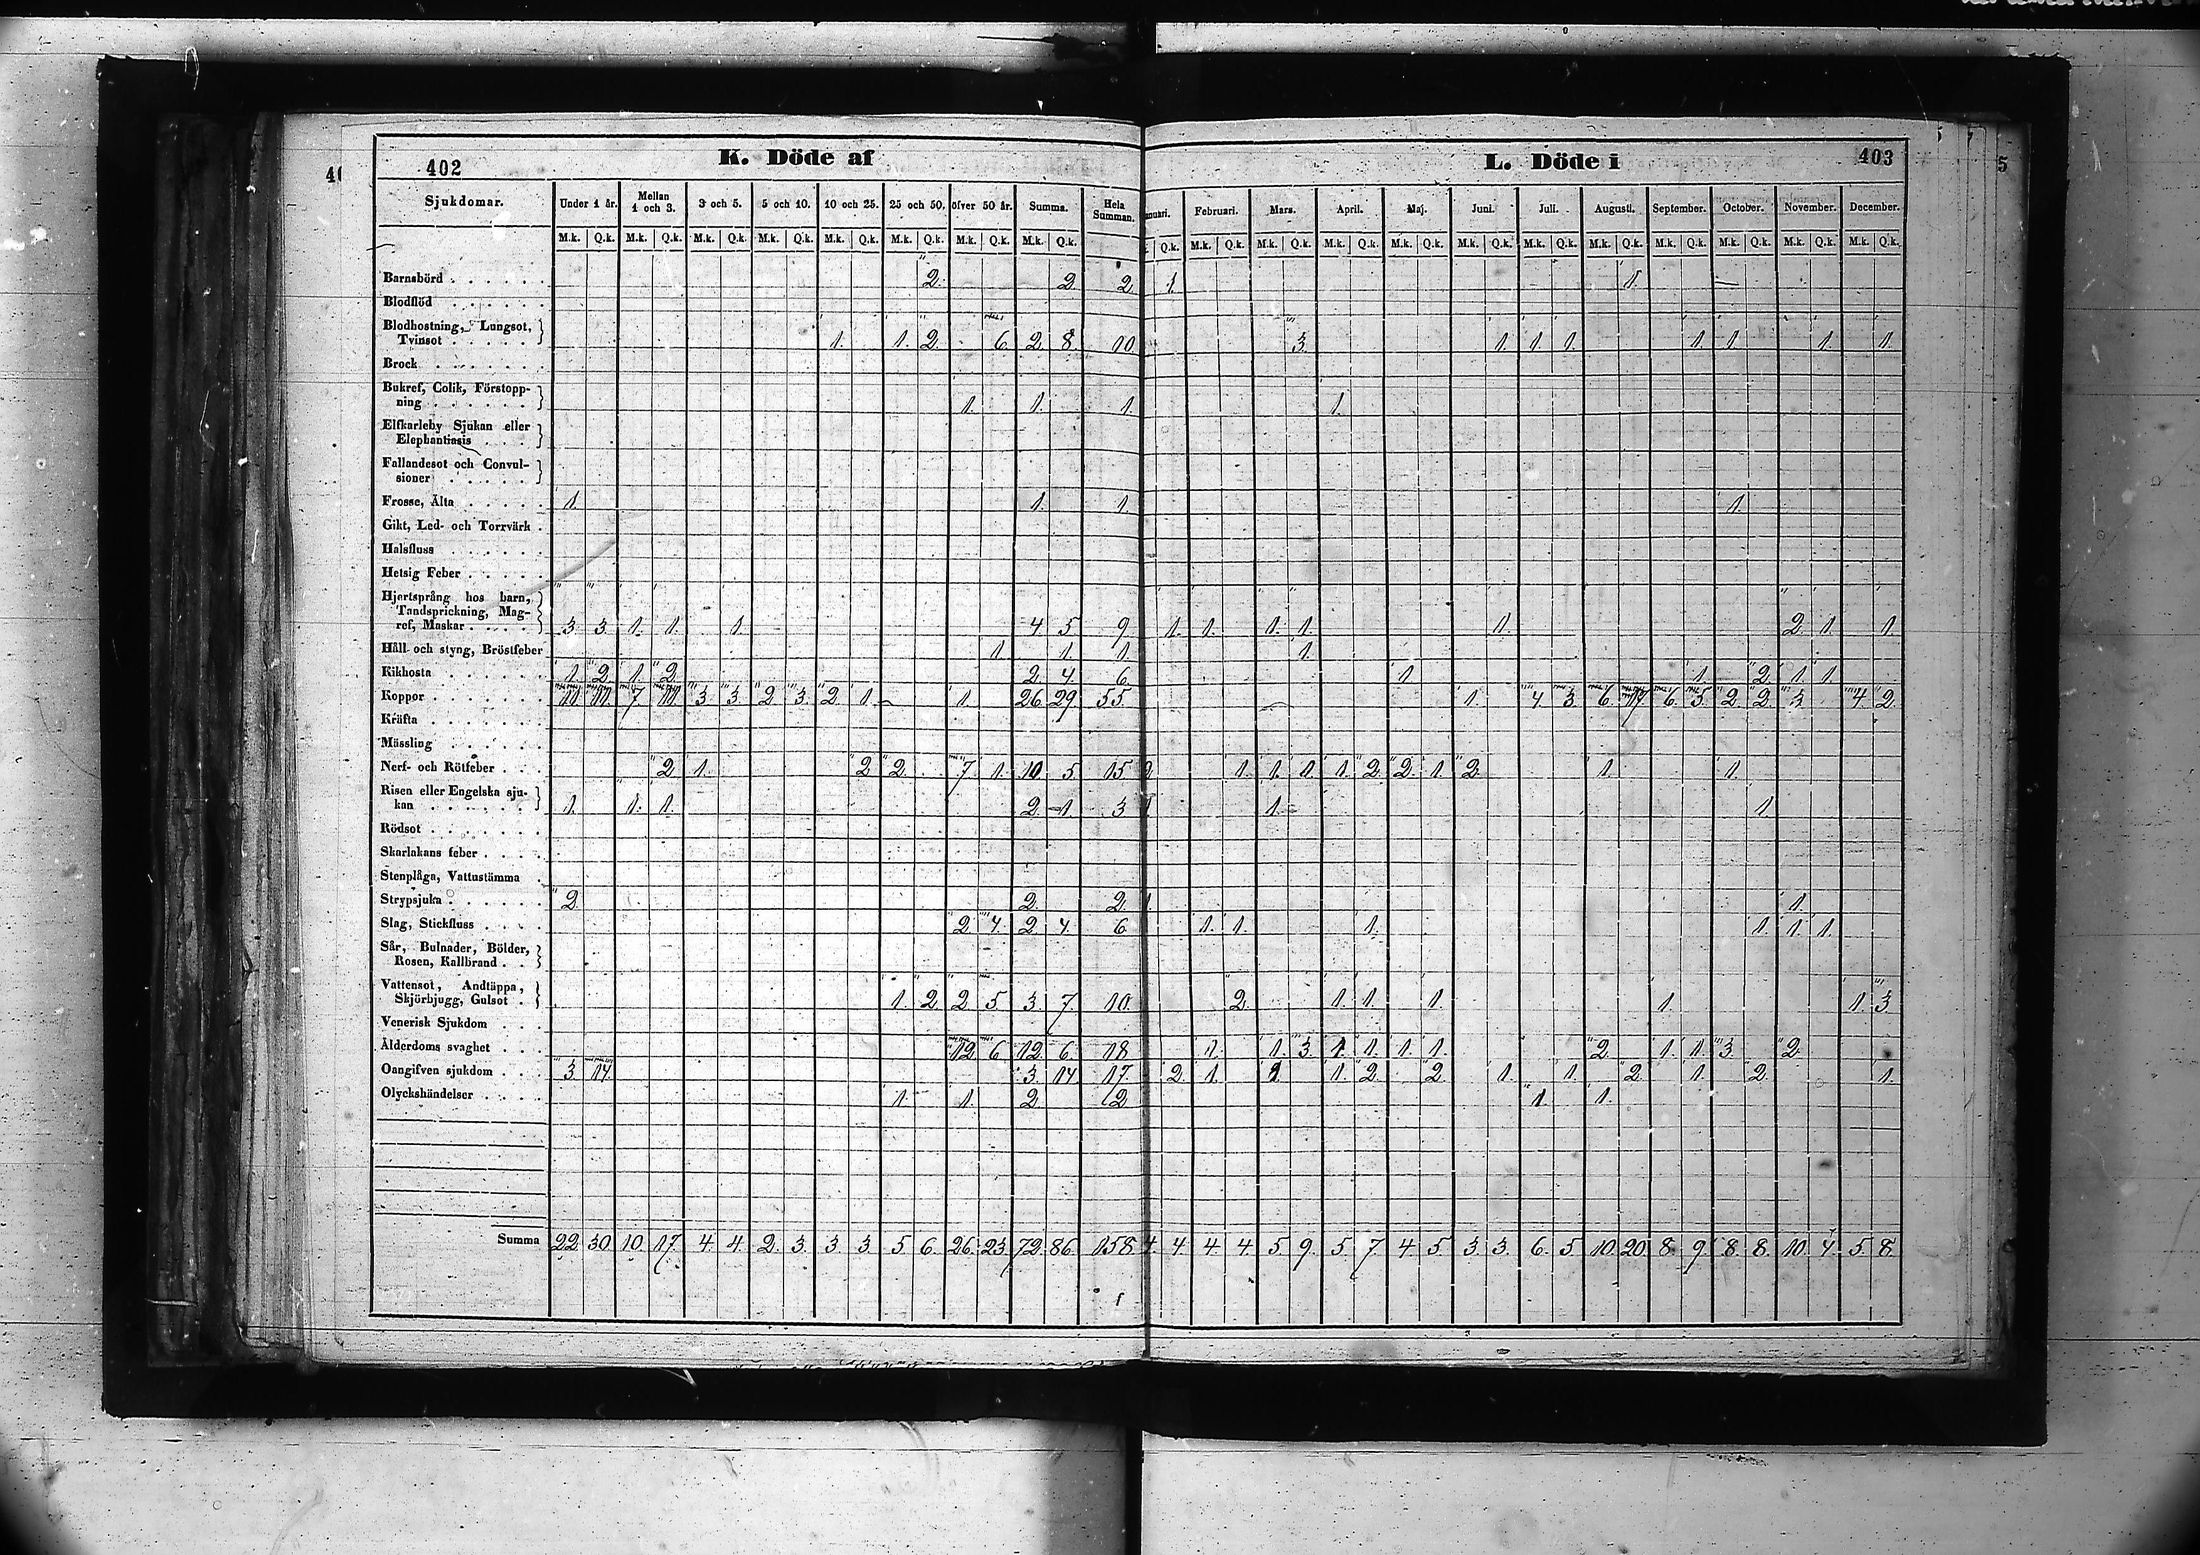 402 K. Döde af
Sjukdomar. Under 1 år. Mellan 1 och 3. 3 och 5. 5 och 10. 10 och 25. 25 och 50. öfver 50 år. Summa. Hela Summan.
M.k. Q.k. M.k. Q.k. M.k. Q.k. M.k. Q.k. M.k. Q.k. M.k. Q.k. M.k. Q.k. M.k. Q.k.
Barnsbörd 2. 2. 2.
Blodflöd
Blodhostning, Lungsot,
Tvinsot 1. 1. 2. 6. 2. 8. 10.
Brock
Bukref, Colik, Förstopp-
ning 1. 1. 1.
Elfkarleby Sjukan eller
Elephantiasis
Fallandesot och Convul-
sioner
Frosse, Älta 1. 1. 1.
Gikt, Led- och Torrvärk
Halsfluss
Hetsig Feber
Hjertsprång hos barn,
Tandsprickning, Mag-
ref, Maskar 3. 3. 1. 1. 1. 4. 5. 9.
Håll och styng, Bröstfeber 1. 1. 1.
Kikhosta 1. 2. 1. 2. 2. 4. 6.
Koppor 11. 11. 7. 11. 3. 3. 2. 3. 2. 1. 1. 26. 29. 55.
Kräfta
Mässling
Nerf- och Rötfeber 2. 1. 2. 2. 7. 1. 10. 5. 15
Risen eller Engelska sju-
kan 1. 1. 1. 2. 1. 3
Rödsot
Skarlakans feber
Stenplåga, Vattustämma
Strypsjuka 2. 2. 2.
Slag, Stickfluss 2. 4. 2. 4. 6.
Sår, Bulnader, Bölder,
Rosen, Kallbrand
Vattensot, Andtäppa,
Skjörbjugg, Gulsot 1. 2. 2. 5. 3. 7. 10.
Venerisk Sjukdom
Ålderdoms svaghet 12. 6. 12. 6. 18
Oangifven sjukdom 3. 14. 3. 14 17.
Olyckshändelser 1. 1. 2. 2
Summa 22. 30. 10. 17. 4. 4. 2. 3. 3. 3. 5. 6. 26. 23. 72. 86. 158.
L. Döde i 403
nuari. Februari. Mars. April. Maj. Juni. Juli. Augusti. September. October. November. December.
Q.k. M.k. Q.k. M.k. Q.k. M.k. Q.k. M.k. Q.k. M.k. Q.k. M.k. Q.k. M.k. Q.k. M.k. Q.k. M.k. Q.k. M.k. Q.k. M.k. Q.k.
1. 1.
3. 1. 1. 1. 1. 1. 1. 1.
1.
1.
1. 1. 1. 1. 1. 2. 1. 1.
1.
1. 1. 2. 1. 1.
1. 4. 3. 6. 17. 6. 5. 2. 2. 3. 4. 2.
1. 1. 1. 1. 2. 2. 1. 2. 1. 1.
1. 1.
1. 1.
1. 1. 1. 1. 1. 1.
2. 1. 1. 1. 1. 1. 3.
1. 1. 3. 1. 1. 1. 1. 2. 1. 1. 3. 2.
2. 1. 1. 1. 2. 2. 1. 1. 2. 1. 2. 1.
1. 1.
4. 4. 4. 4. 5. 9. 5. 7. 4. 5. 3. 3. 6. 5. 10. 20. 8. 9. 8. 8. 10. 4. 5. 8.